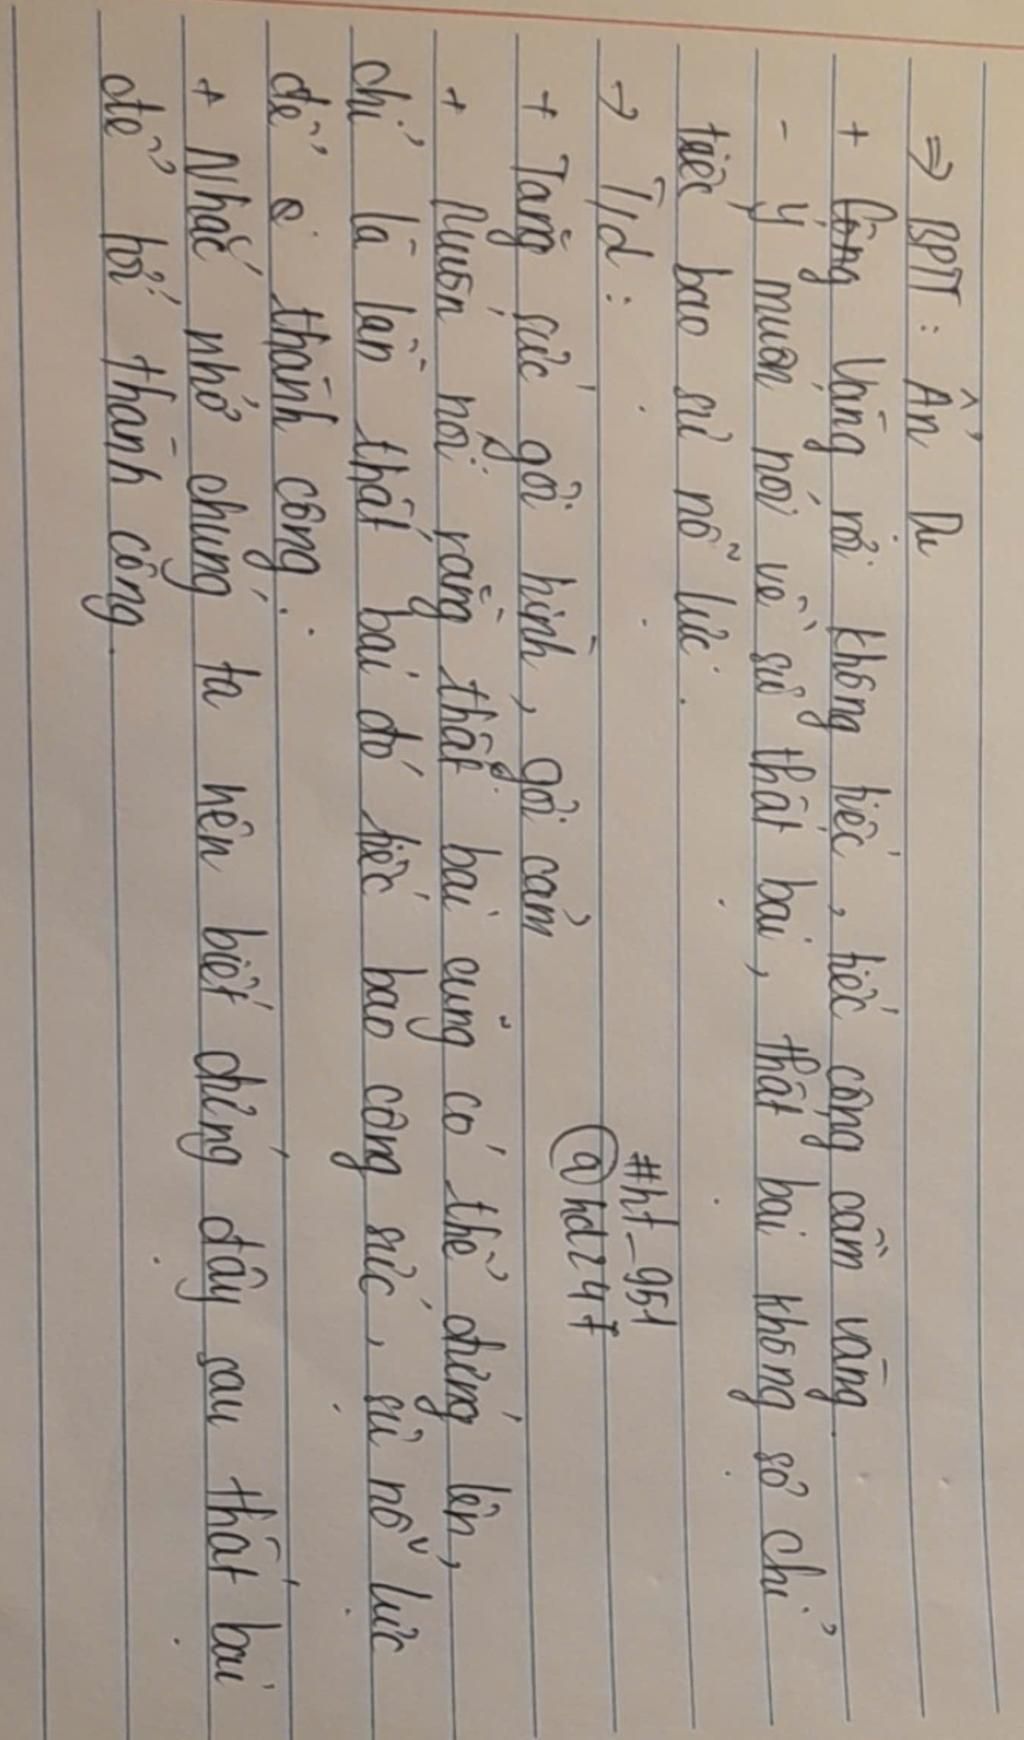 ⇒ BPTT: Ẩn Dụ
+ Vàng rơi không tiếc, tiếc công cầm vàng.
- Ý muốn nói về sự thất bại, thất bại không sợ chỉ
tiếc bao sự nỗ lực.
→ T/d:
#ht_951
@hd247
+ Tăng sức gợi hình, gợi cảm
+ Muốn nói rằng thất bại cũng có thể đứng lên,
chỉ là lần thất bại đó tiếc bao công sức, sự nỗ lực
để thành công.
+ Nhắc nhở chúng ta nên biết đứng dậy sau thất bại
để thành công.